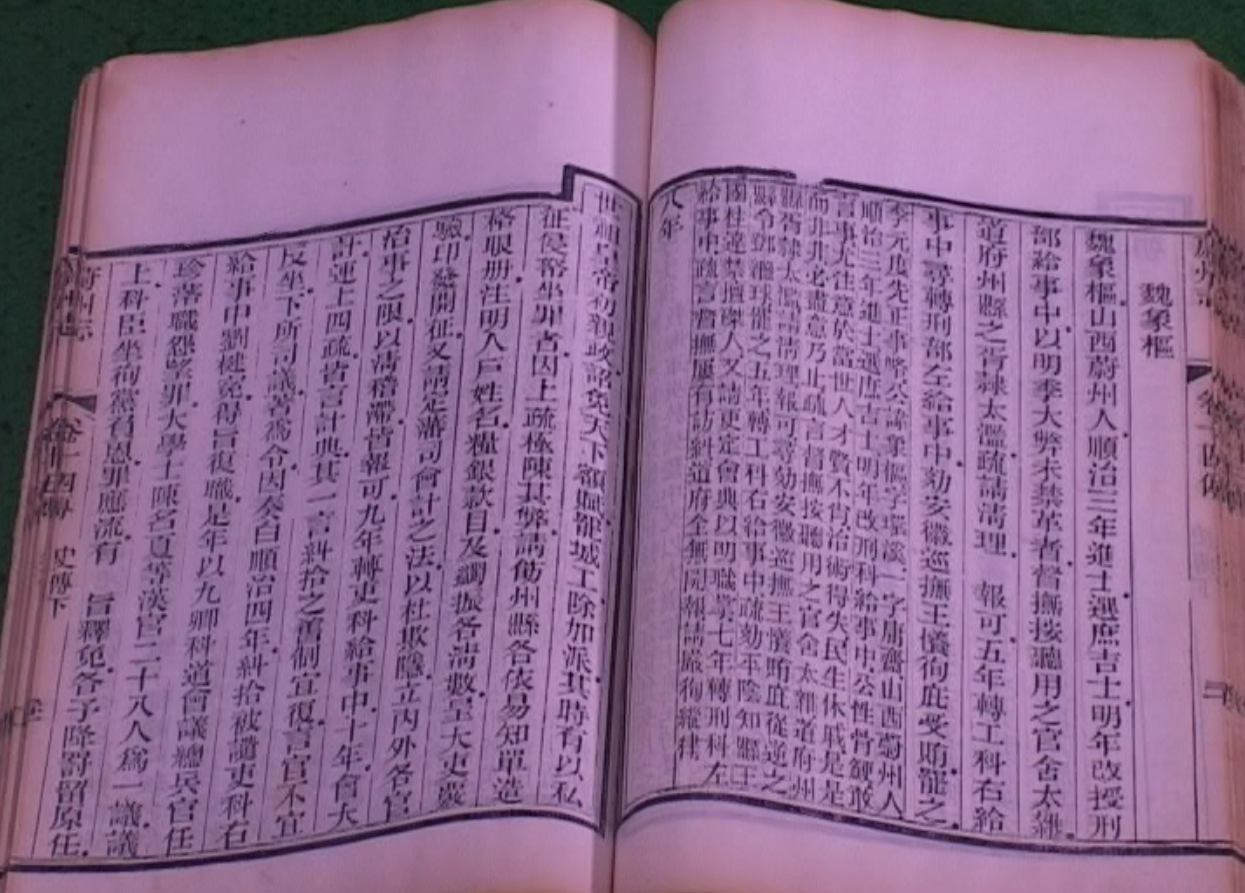 魏象樞
魏象樞山西蔚州人順治三年進士選庶吉士明年改授刑
部給事中以明季大弊未禁革者督撫按聽用之官舍太雜
道府州縣之胥隸太濫疏請清理 報可五年轉工科右給
事中尋轉刑部左給事中劾安徽巡撫王懩狥庇受賄罷之
李元度先正事略公諱象樞字環溪一字庸齋山西蔚州人
順治三年進士選庶吉士明年改刑科給事中公性骨鯁敢
言事尤注意於當世人才賢不肖治術得失民生休戚是是
而非非必盡意乃止疏言督撫按聽用之官舍太雜道府州
縣胥隸太濫請清理報可尋劾安徽巡撫王懩賄庇從逆之
縣令鄧繼球罷之五年轉工科右給事中疏劾平陰知縣王
國柱違禁擅 人又請更定會典以明職掌七年轉刑科左
給事中疏言督撫屢有訪糾道府全無同報請嚴狥縱律
八年
世祖皇帝初親政詔免天下額賦罷城工除加派其時有以私
征侵帑坐罪者因上疏極陳其弊請飭州縣各依易知單造
格眼册注明人戶姓名糧銀款目及蠲振各清數呈大吏覈
驗印發開征又請定藩司會計之法以杜欺隱立內外各官
治事之限以清積滯皆報可九年轉吏科給事中十年會大
計連上四疏皆言計典其一言糾拾之善個宜復言官不宜
反坐下所司議著爲令因奏白順治四年糾拾被譴吏科右
給事中劉楗冤得旨復職是年以九卿科道會議總兵官任
珍落職怨望罪大學士陳名夏等漢官二十八人爲一議議
上科臣坐狥黨負恩罪應流有 旨釋免各予降罰留原任
蔚州志 卷十四傳 史傳下